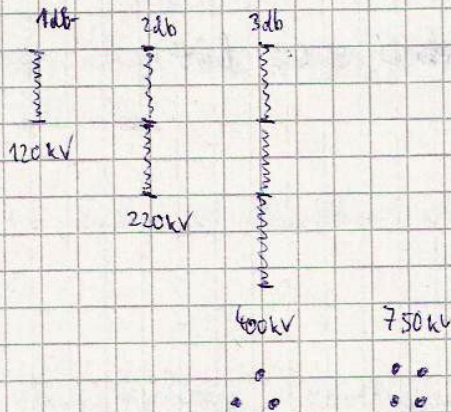 1db 2db 3db
120kV
220kV
400kV 750kV